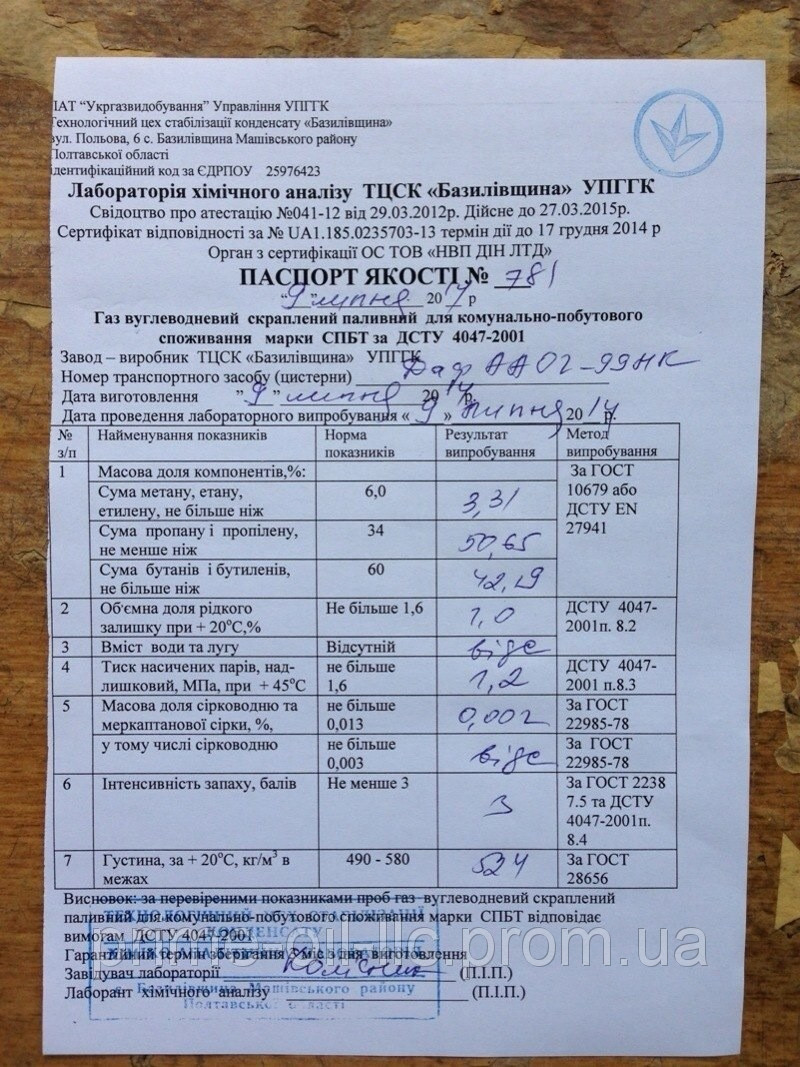 ПАТ “Укргазвидобування” Управління УПГГК
Технологічний цех стабілізації конденсату «Базилівщина»
вул. Польова, 6 с. Базилівщина Машівського району
Полтавської області
ідентифікаційний код за ЄДРПОУ 25976423
Лабораторія хімічного аналізу ТЦСК «Базилівщина» УПГГК
Свідоцтво про атестацію №041-12 від 29.03.2012р. Дійсне до 27.03.2015р.
Сертифікат відповідності за № UA1.185.0235703-13 термін дії до 17 грудня 2014 р
Орган з сертифікації ОС ТОВ «НВП ДІН ЛТД»
ПАСПОРТ ЯКОСТІ № 781
“9” липня 2014 р
Газ вуглеводневий скраплений паливний для комунально-побутового
споживання марки СПБТ за ДСТУ 4047-2001
Завод – виробник ТЦСК «Базилівщина» УПГГК
Номер транспортного засобу (цистерни) Даф АА 02-99 НК
Дата виготовлення ”9” липня 2014 р.
Дата проведення лабораторного випробування « 9 » липня 2014 р.
№ з/п Найменування показників Норма показників Результат випробування Метод випробування
1 Масова доля компонентів,%: За ГОСТ 10679 або ДСТУ EN 27941
Сума метану, етану, етилену, не більше ніж 6,0 3,31
Сума пропану і пропілену, не менше ніж 34 50,65
Сума бутанів і бутиленів, не більше ніж 60 42,19
2 Об'ємна доля рідкого залишку при + 20°С,% Не більше 1,6 1,0 ДСТУ 4047-2001п. 8.2
3 Вміст води та лугу Відсутній відс
4 Тиск насичених парів, над-лишковий, МПа, при + 45°С не більше 1,6 1,2 ДСТУ 4047-2001 п.8.3
5 Масова доля сірководню та меркаптанової сірки, %, не більше 0,013 0,002 За ГОСТ 22985-78
у тому числі сірководню не більше 0,003 відс За ГОСТ 22985-78
6 Інтенсивність запаху, балів Не менше 3 3 За ГОСТ 2238 7.5 та ДСТУ 4047-2001п. 8.4
7 Густина, за + 20°С, кг/м³ в межах 490 - 580 524 За ГОСТ 28656
Висновок: за перевіреними показниками проб газ вуглеводневий скраплений
паливний для комунально-побутового споживання марки СПБТ відповідає
вимогам ДСТУ 4047-2001
Гарантійний термін зберігання 3 міс з дня виготовлення
Завідувач лабораторії (П.І.П.)
Лаборант хімічного аналізу (П.І.П.)
ТЕХНОЛОГІЧНИЙ ЦЕХ СТАБІЛІЗАЦІЇ
КОНДЕНСАТУ
с. Базилівщина Машівського району
Полтавської області
prom.ua